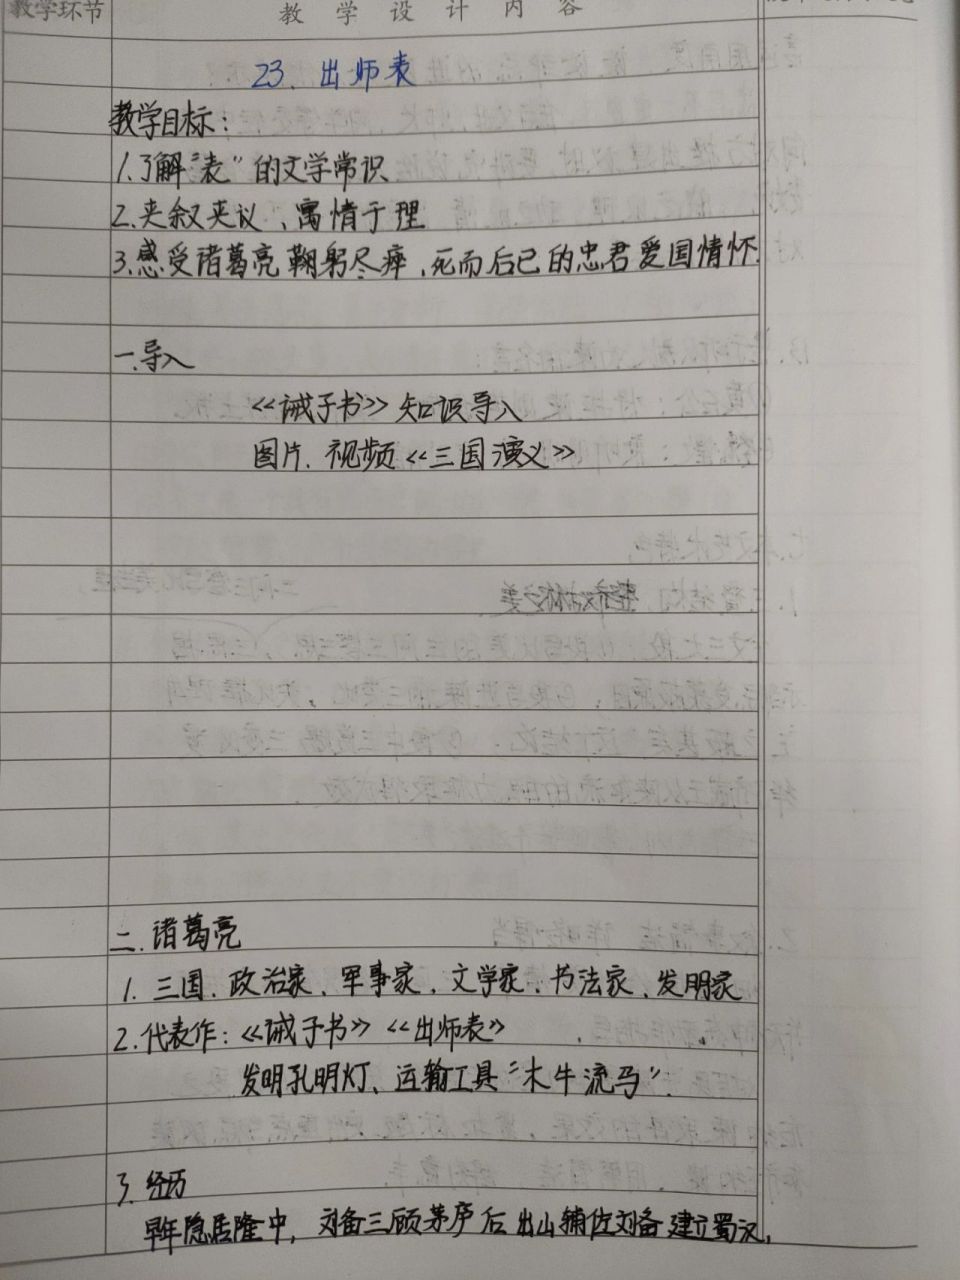 教学环节
教学设计内容
23、出师表
教学目标：
1.了解“表”的文学常识
2.夹叙夹议、寓情于理
3.感受诸葛亮鞠躬尽瘁，死而后已的忠君爱国情怀.
一.导入
《诫子书》知识导入
图片.视频《三国演义》
二.诸葛亮
1.三国、政治家、军事家、文学家、书法家、发明家
2.代表作：《诫子书》《出师表》
发明孔明灯、运输工具“木牛流马”.
3.经历
早年隐居隆中，刘备三顾茅庐后出山辅佐刘备建立蜀汉，